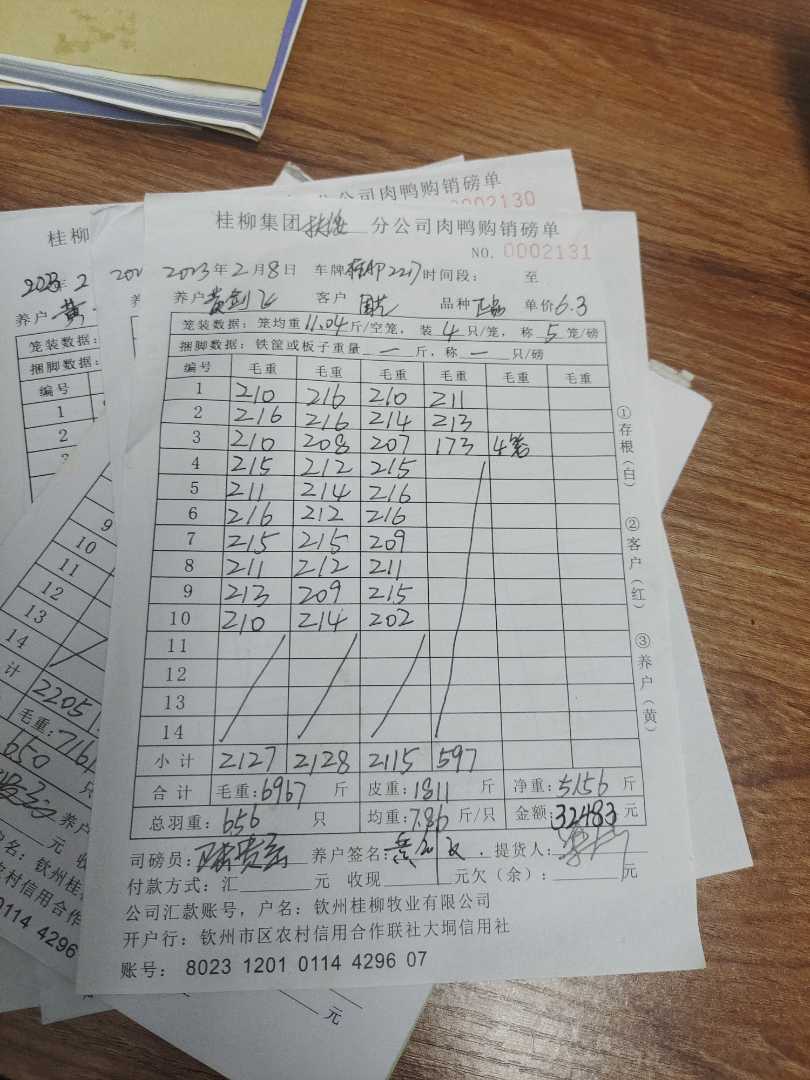 分公司肉鸭购销磅单
0002130
桂柳
2023年2
养户
笼装数据:
捆脚数据:
编号
1
2
桂柳集团扶绥分公司肉鸭购销磅单
NO. 0002131
2023年2月8日 车牌 2217 时间段: 至
养户 黄剑飞 客户 品种 单价6.3
笼装数据: 笼均重11.04斤/空笼, 装4只/笼, 称5笼/磅
捆脚数据: 铁筐或板子重量 — 斤, 称 — 只/磅
编号 毛重 毛重 毛重 毛重 毛重 毛重
1 210 216 210 211
2 216 216 214 213
3 210 208 207 173 4笼
4 215 212 215
5 211 214 216
6 216 212 216
7 215 215 209
8 211 212 211
9 213 209 215
10 210 214 202
11
12
13
14
小计 2127 2128 2115 597
合计 毛重:6967 斤 皮重:1811 斤 净重:5156 斤
总羽重: 656 只 均重:7.86 斤/只 金额:32483 元
司磅员: 养户签名: , 提货人:
付款方式: 汇 元 收现 元欠(余): 元
公司汇款账号, 户名: 钦州桂柳牧业有限公司
开户行: 钦州市区农村信用合作联社大垌信用社
账号: 8023 1201 0114 4296 07
①存根(白)
②客户(红)
③养户(黄)
9
10
11
12
13
14
计 2205
毛重:
650 只
养户
元 收
户名: 钦州桂
农村信用合作
0114 4296
元